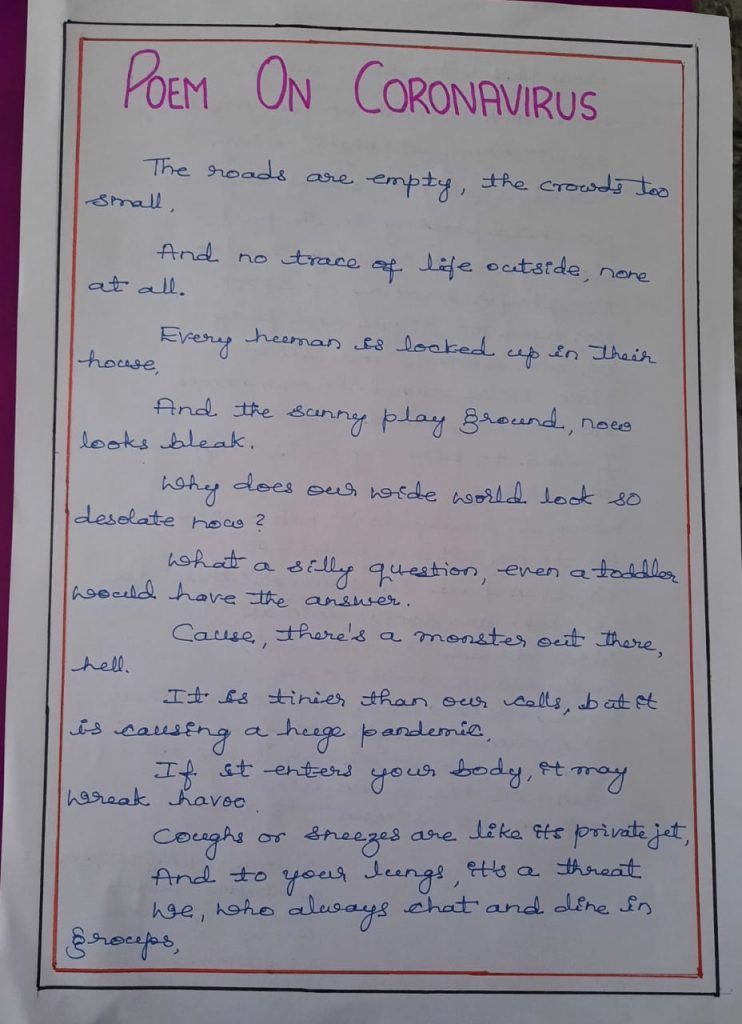 POEM ON CORONAVIRUS
The roads are empty, the crowds too
small,
And no trace of life outside, none
at all.
Every human is locked up in their
house,
And the sunny play ground, now
looks bleak.
Why does our wide world look so
desolate now?
What a silly question, even a toddler
would have the answer.
Cause, there's a monster out there,
hell.
It is tinier than our cells, but it
is causing a huge pandemic,
If it enters your body, it may
wreak havoc.
Coughs or sneezes are like its private jet,
And to your lungs, it's a threat
We, who always chat and dine in
groups,